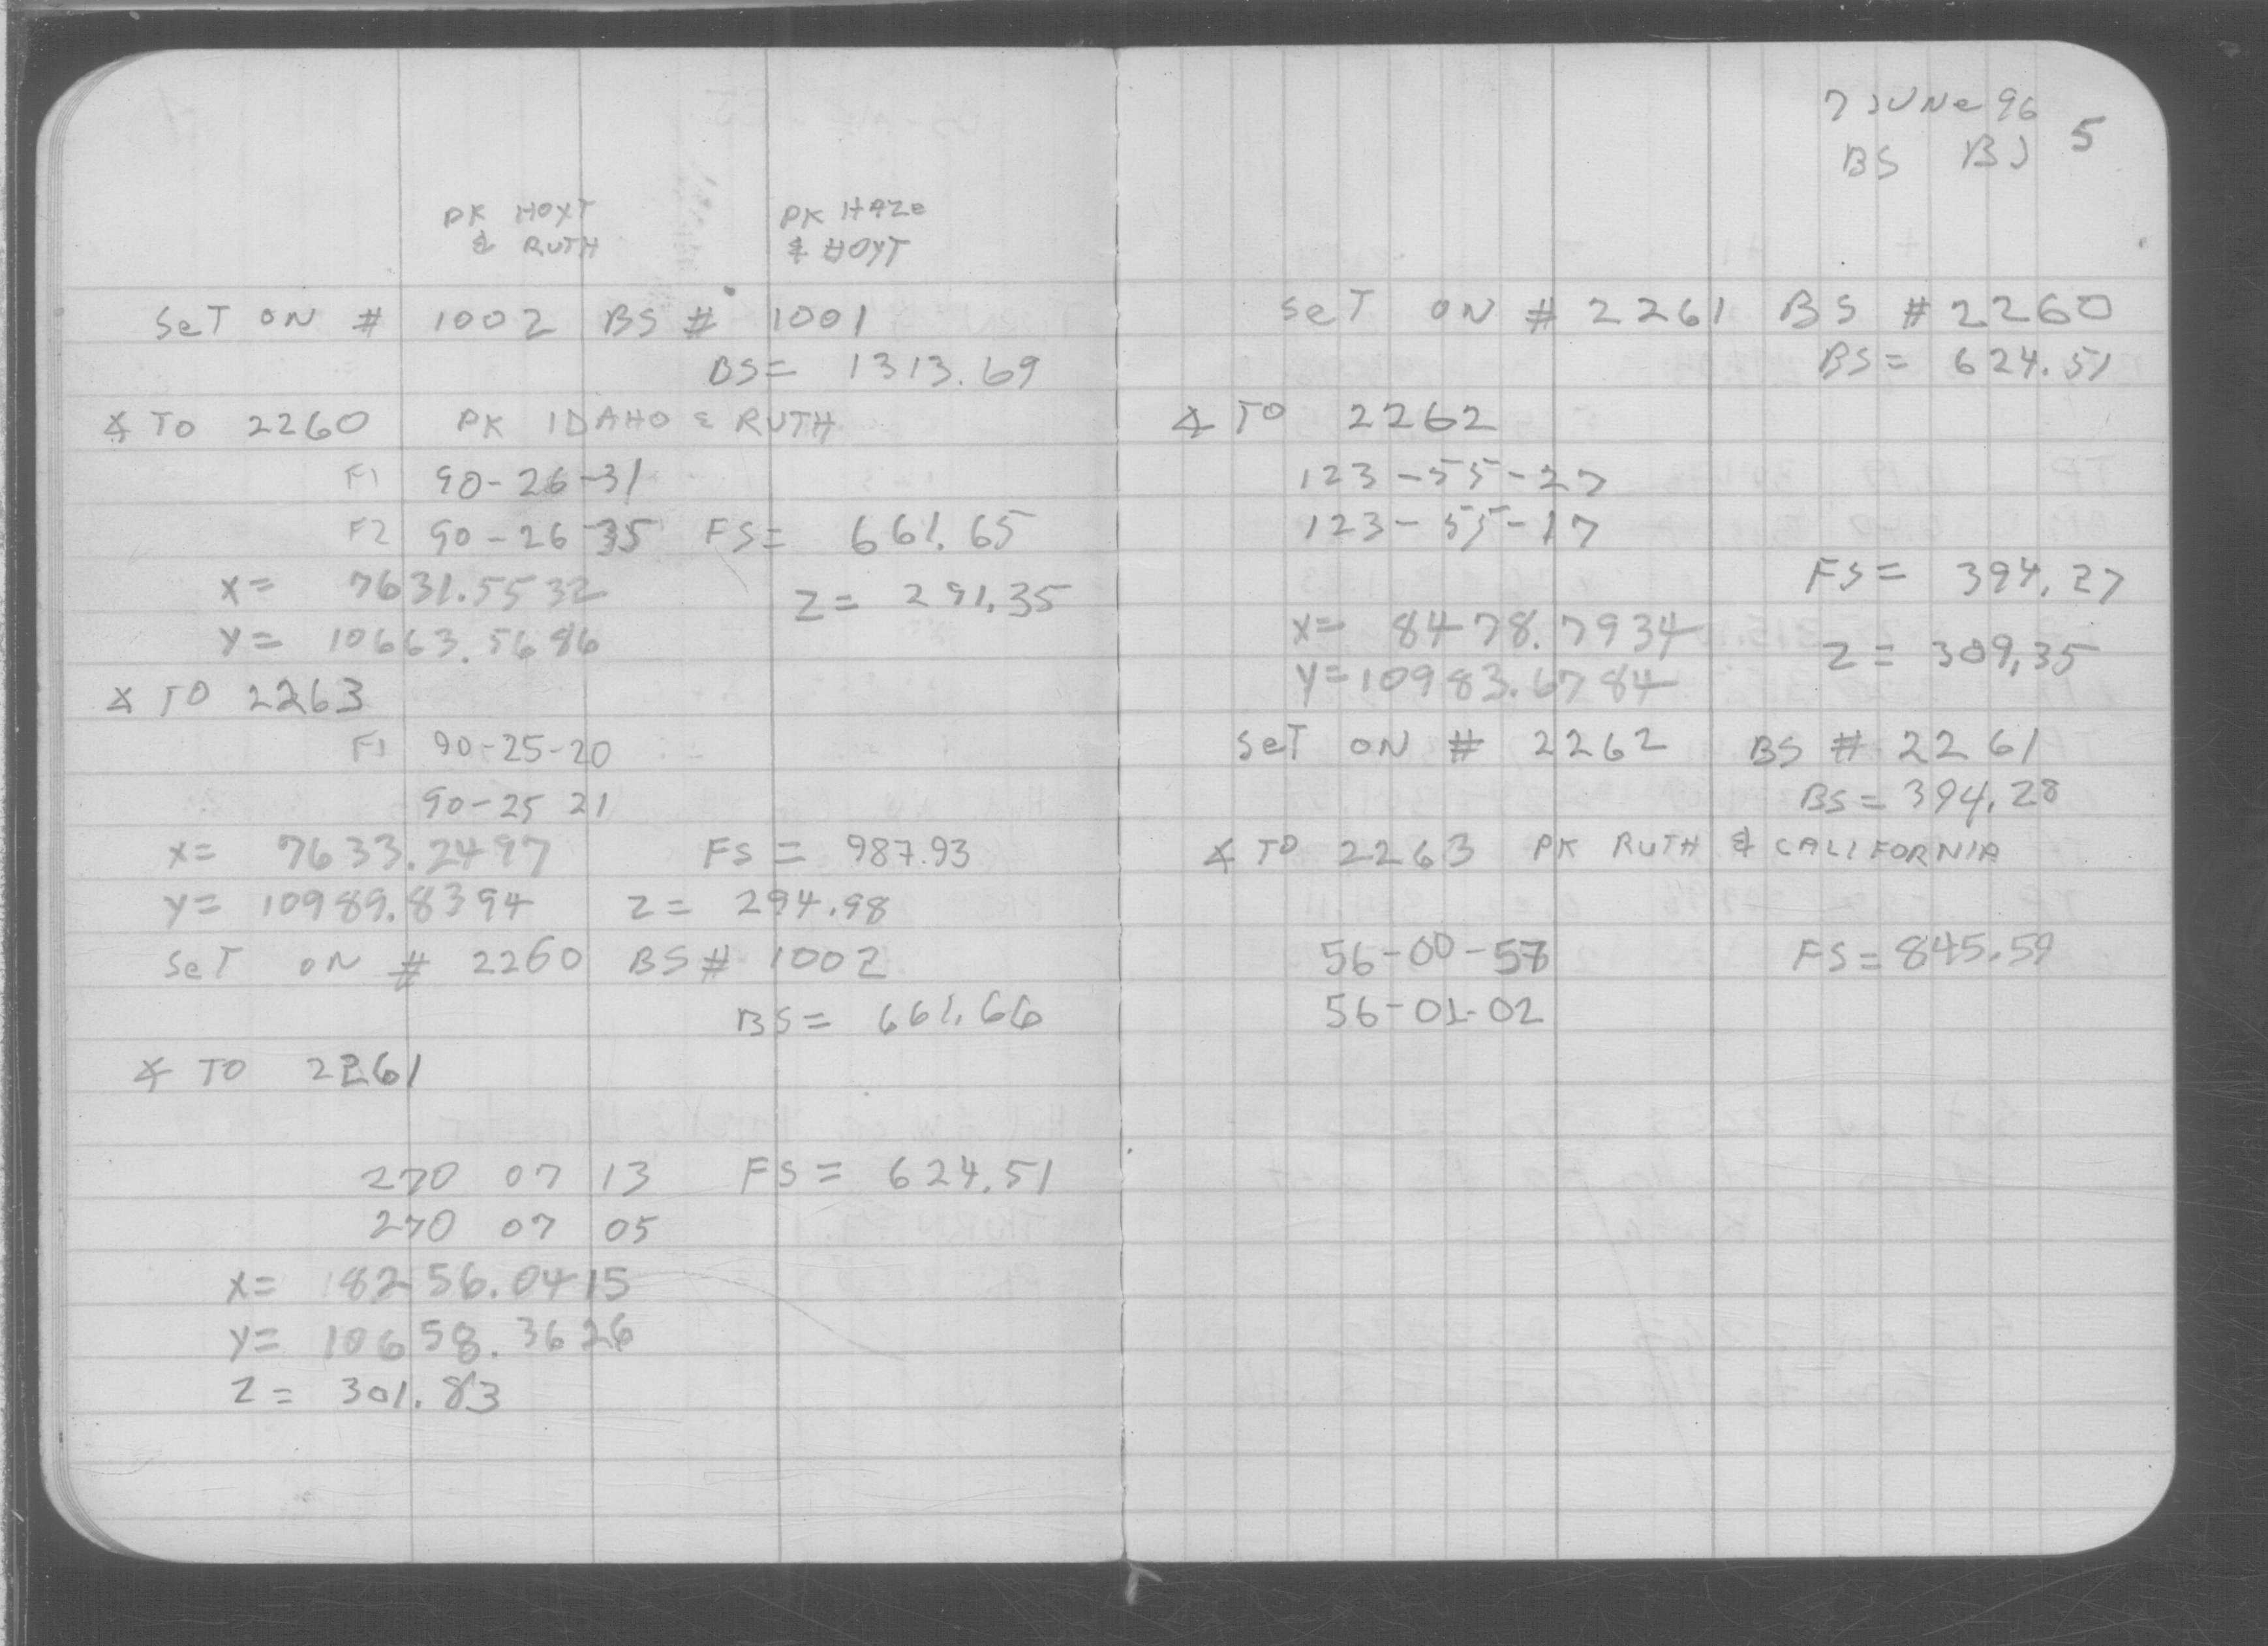 PK HOYT & RUTH
PK HAZE & HOYT
SET ON # 1002 BS # 1001
BS= 1313.69
∡ TO 2260 PK IDAHO & RUTH
F1 90-26-31
F2 90-26-35 FS= 661.65
X= 7631.5532 Z= 291.35
Y= 10663.5686
∡ TO 2263
F1 90-25-20
90-25 21
X= 7633.2497 FS= 987.93
Y= 10989.8394 Z= 294.98
SeT ON # 2260 BS# 1002
BS= 661.66
∡ TO 2261
270 07 13 FS= 624.51
270 07 05
X= 8256.0415
Y= 10658.3626
Z= 301.83
7 JUNe 96
BS BJ 5
SeT ON # 2261 BS # 2260
BS= 624.51
∡ TO 2262
123-55-27
123-55-17
FS= 394.27
X= 8478.7934
Z= 309.35
Y=10983.6784
SeT ON # 2262 BS # 2261
BS= 394.28
∡ TO 2263 PK RUTH & CALIFORNIA
56-00-57 FS= 845.59
56-01-02